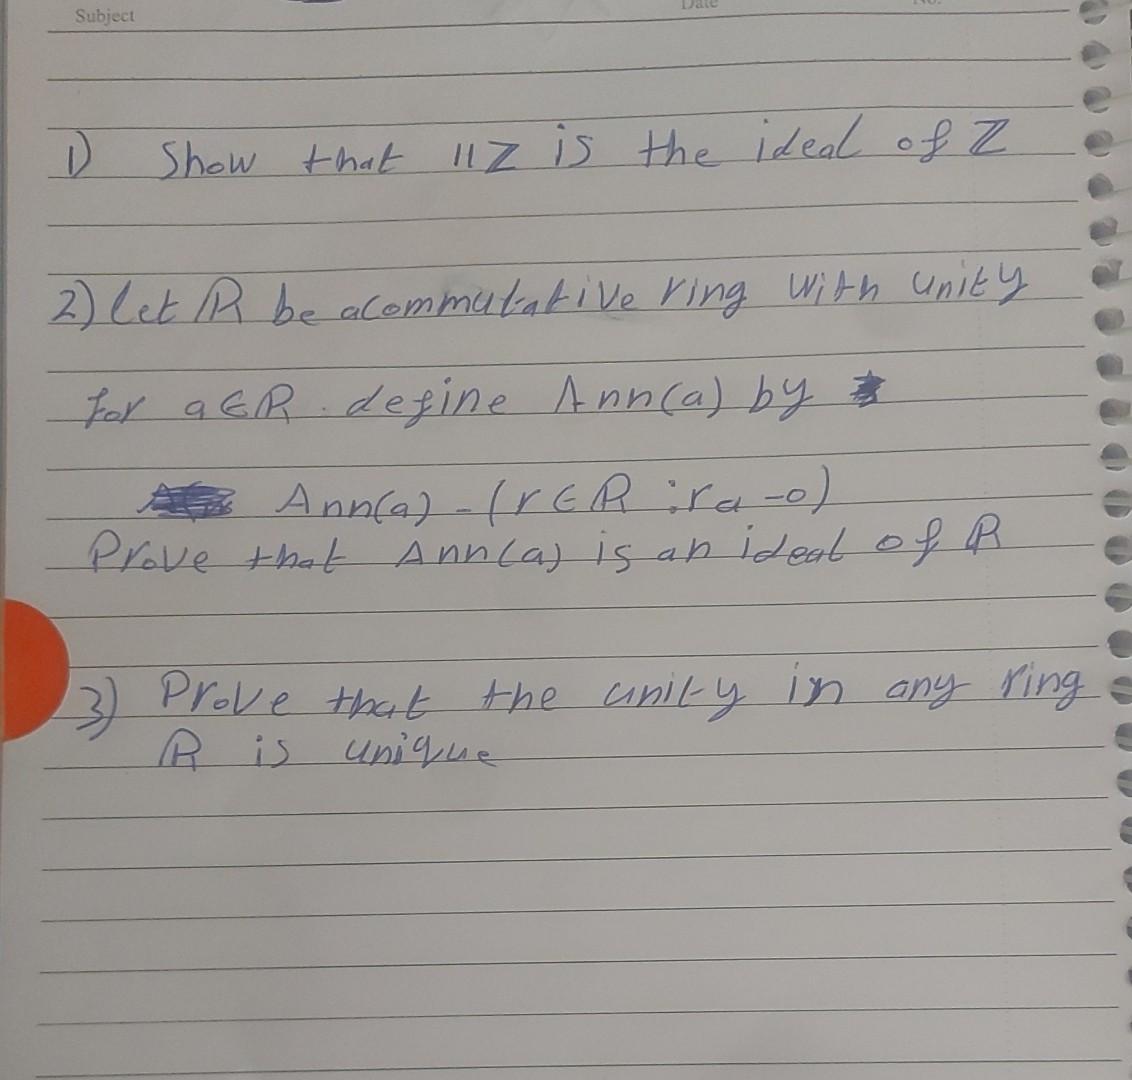 Subject
Date
No.
1) Show that 11Z is the ideal of Z
2) let R be acommutative ring with unity
for a∈R. define Ann(a) by
Ann(a) - (r∈R : ra -0)
Prove that Ann(a) is an ideal of R
3) Prove that the unity in any ring
R is unique